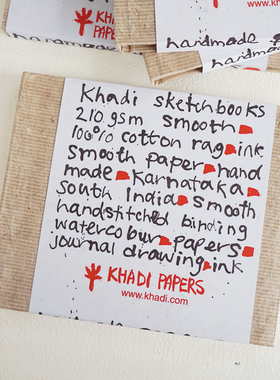 KHADI
PAPERS
www.khadi.com
handmade
handmade
Khadi sketchbooks
210 gsm smooth
100% cotton rag ink
smooth paper hand
made Karnataka
South India smooth
handstitched binding
watercolour papers
journal drawing ink
KHADI PAPERS
www.khadi.com